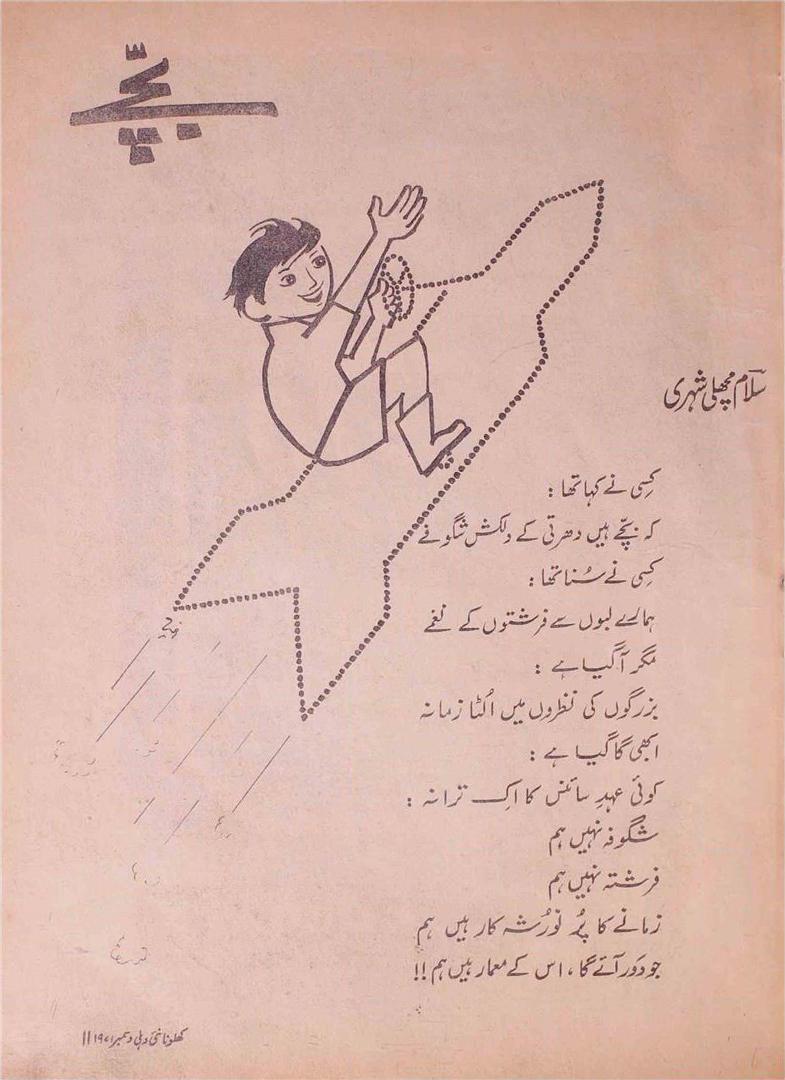 بچّے
سلام مچھلی شہری
کِسی نے کہا تھا :
کہ بچّے ہیں دھرتی کے دلکش شگوفے
کِسی نے سُنا تھا :
ہمارے لبوں سے فرشتوں کے نغمے
مگر آگیا ہے :
بزرگوں کی نظروں میں اُلٹا زمانہ
ابھی گا گیا ہے :
کوئی عہدِ سائنس کا اِک ترانہ :
شگوفہ نہیں ہم
فرشتہ نہیں ہم
زمانے کا پُر نُور شہ کار ہیں ہم
جو دَور آئے گا، اس کے معمار ہیں ہم !!
کھلونا نئی دہلی دسمبر ۱۹۷۱ ||